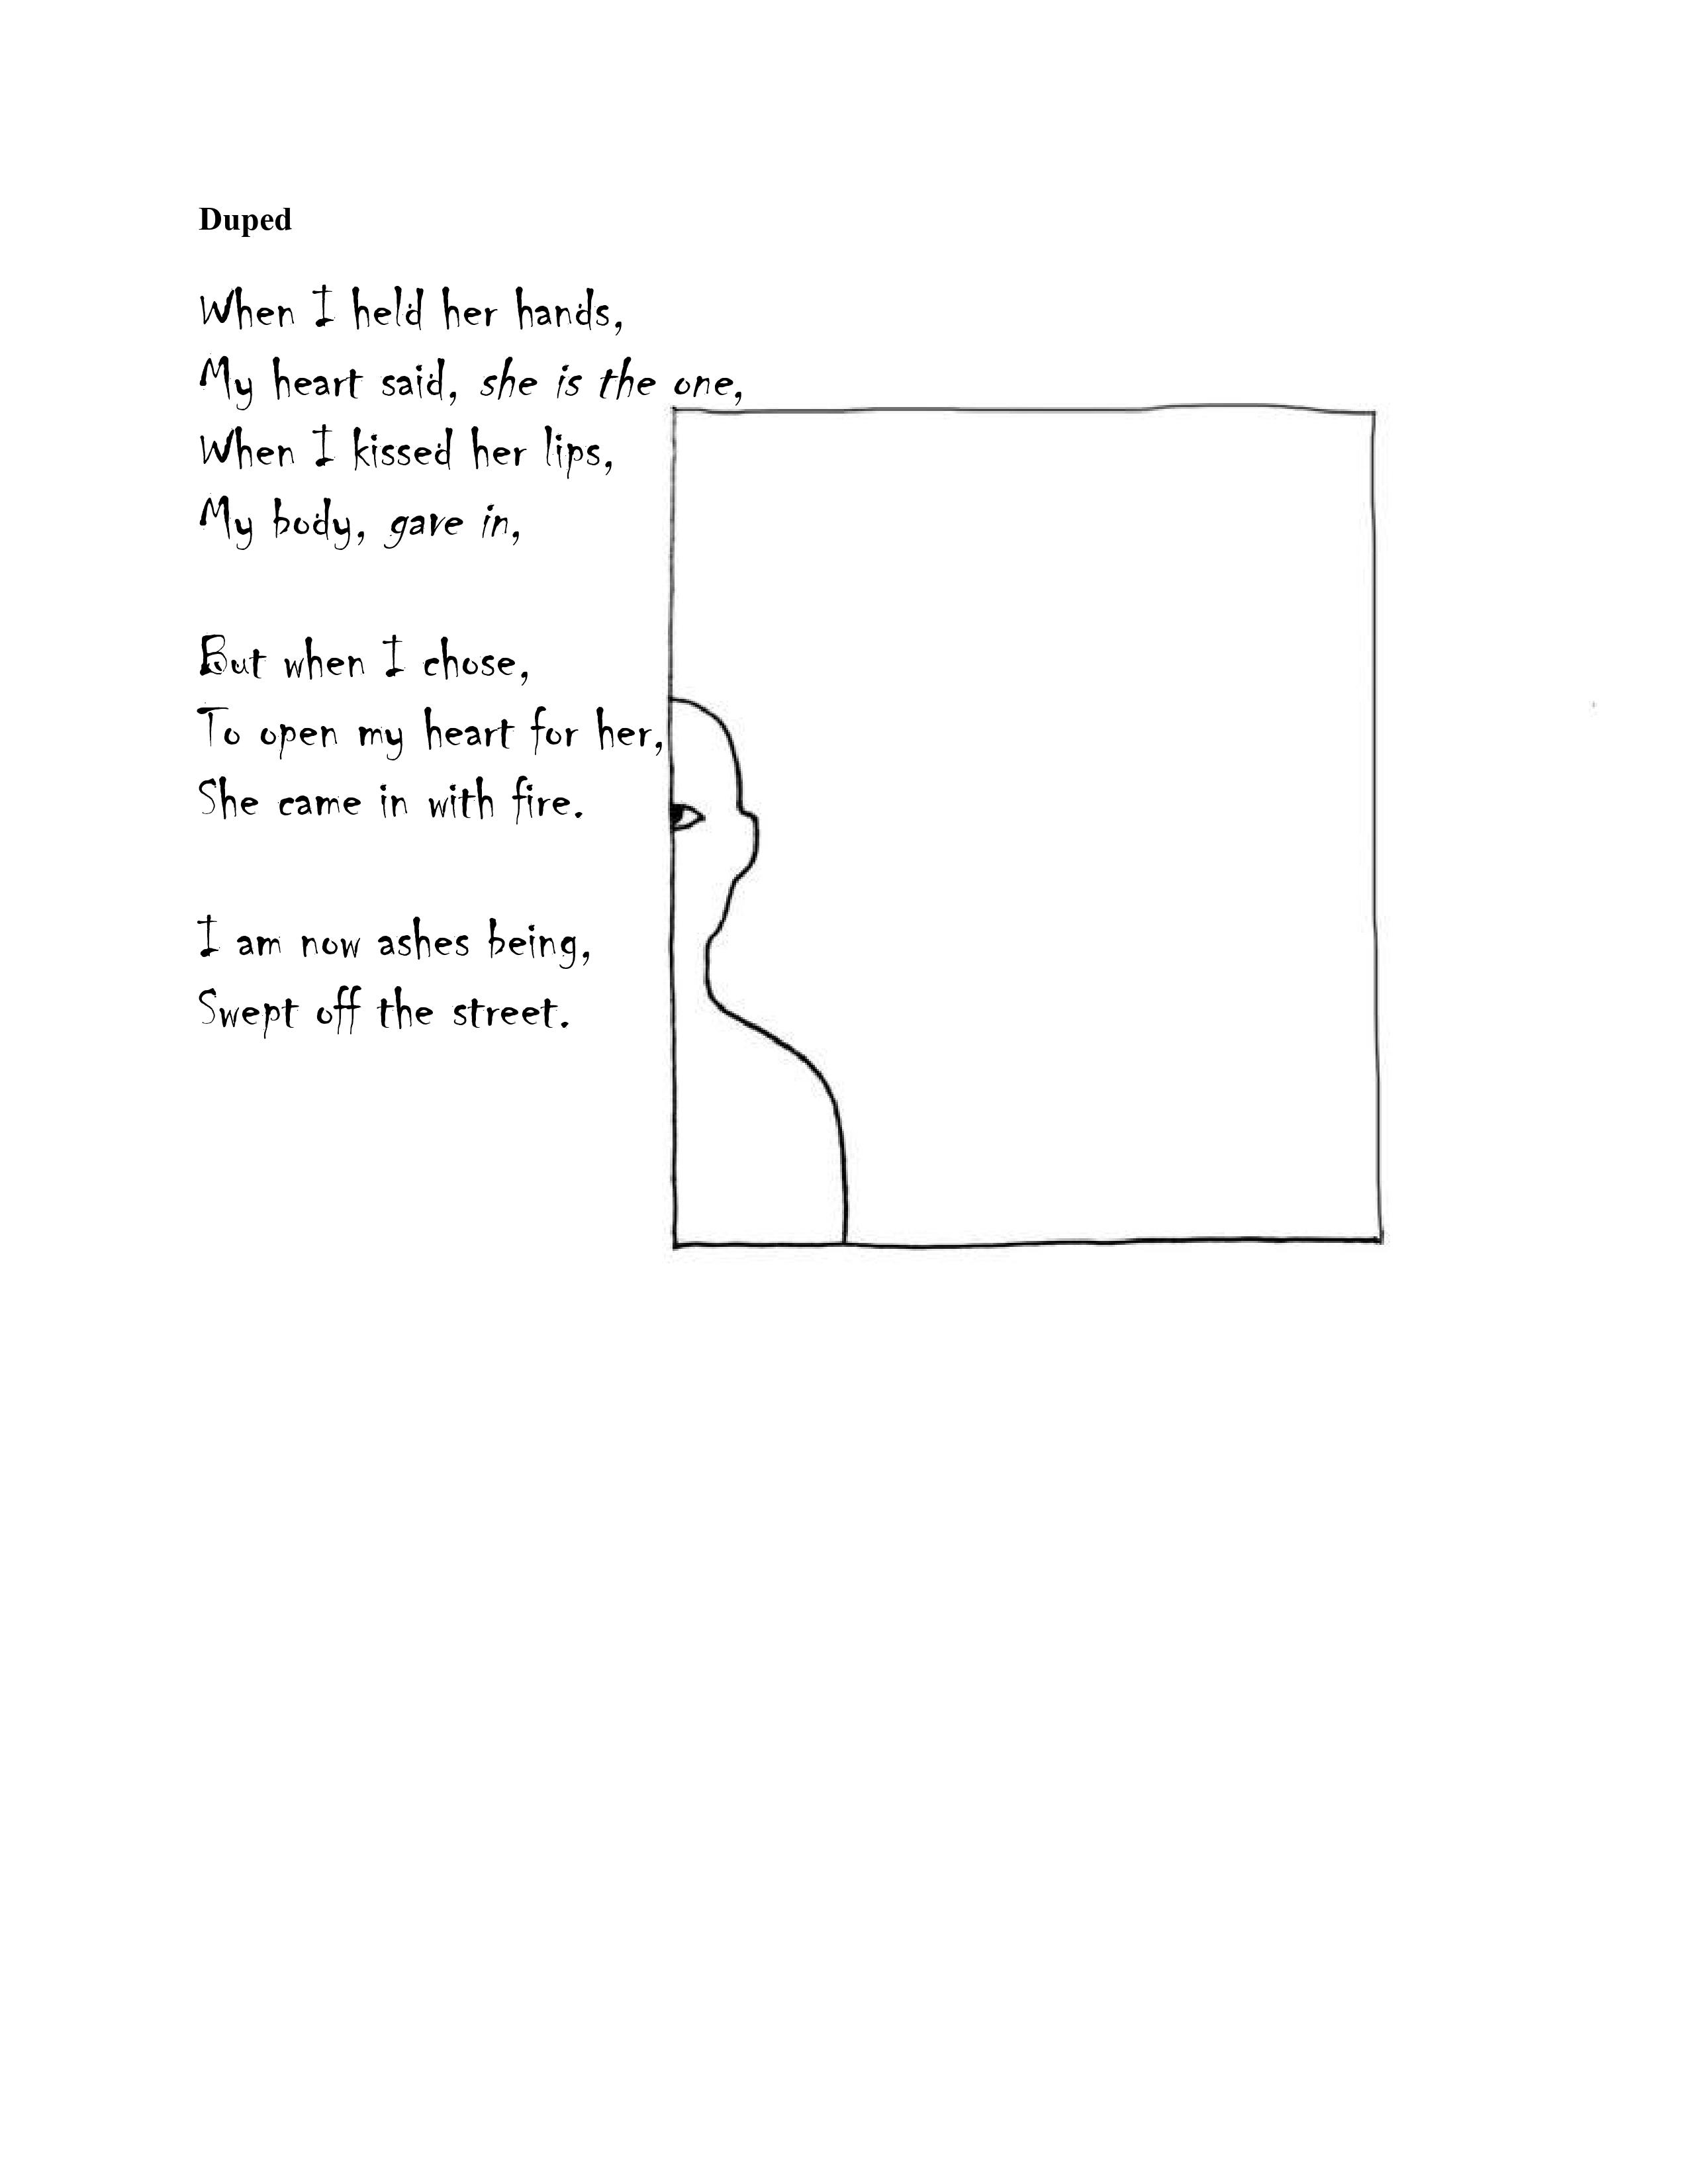 Duped
When I held her hands,
My heart said, she is the one,
When I kissed her lips,
My body, gave in,
But when I chose,
To open my heart for her,
She came in with fire.
I am now ashes being,
Swept off the street.